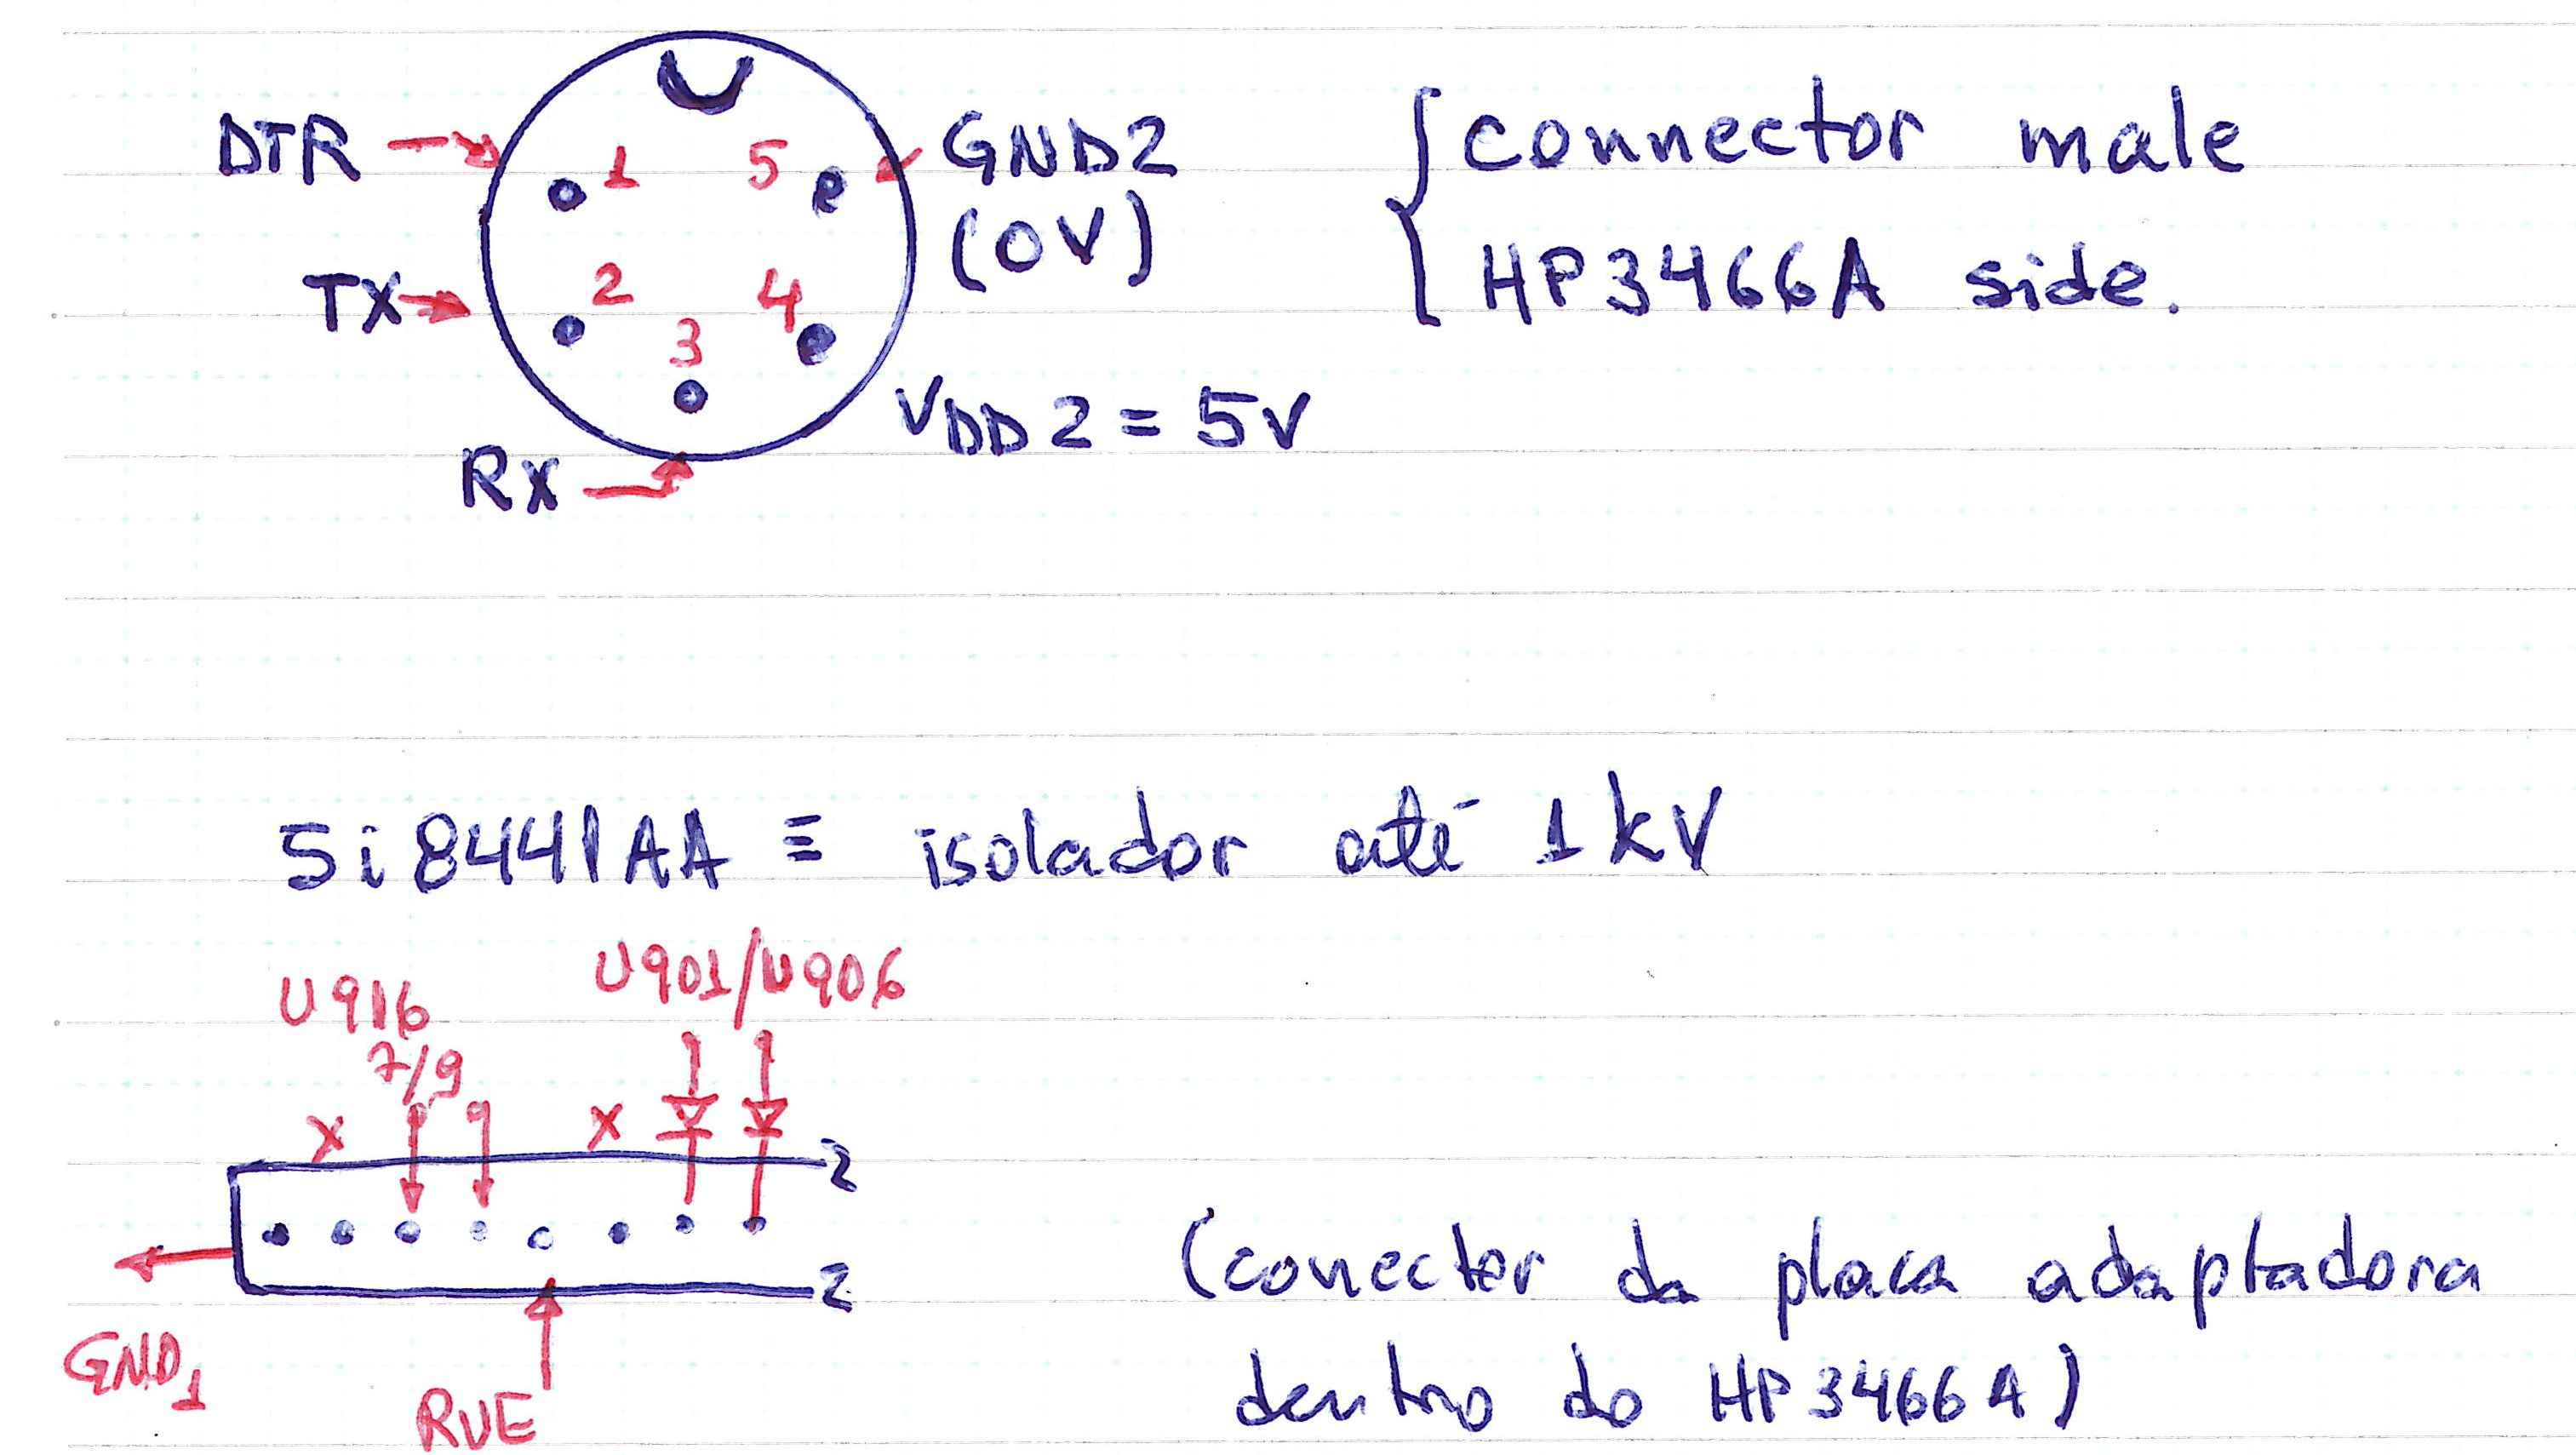 DTR 1 5 GND2
(0V)
TX 2 4
3
RX
VDD2 = 5V
connector male
HP3466A side.
Si8441AA ≡ isolador até 1kV
U916
7/9
U901/U906
x x
GND1
RUE
(conector da placa adaptadora
dentro do HP3466A)